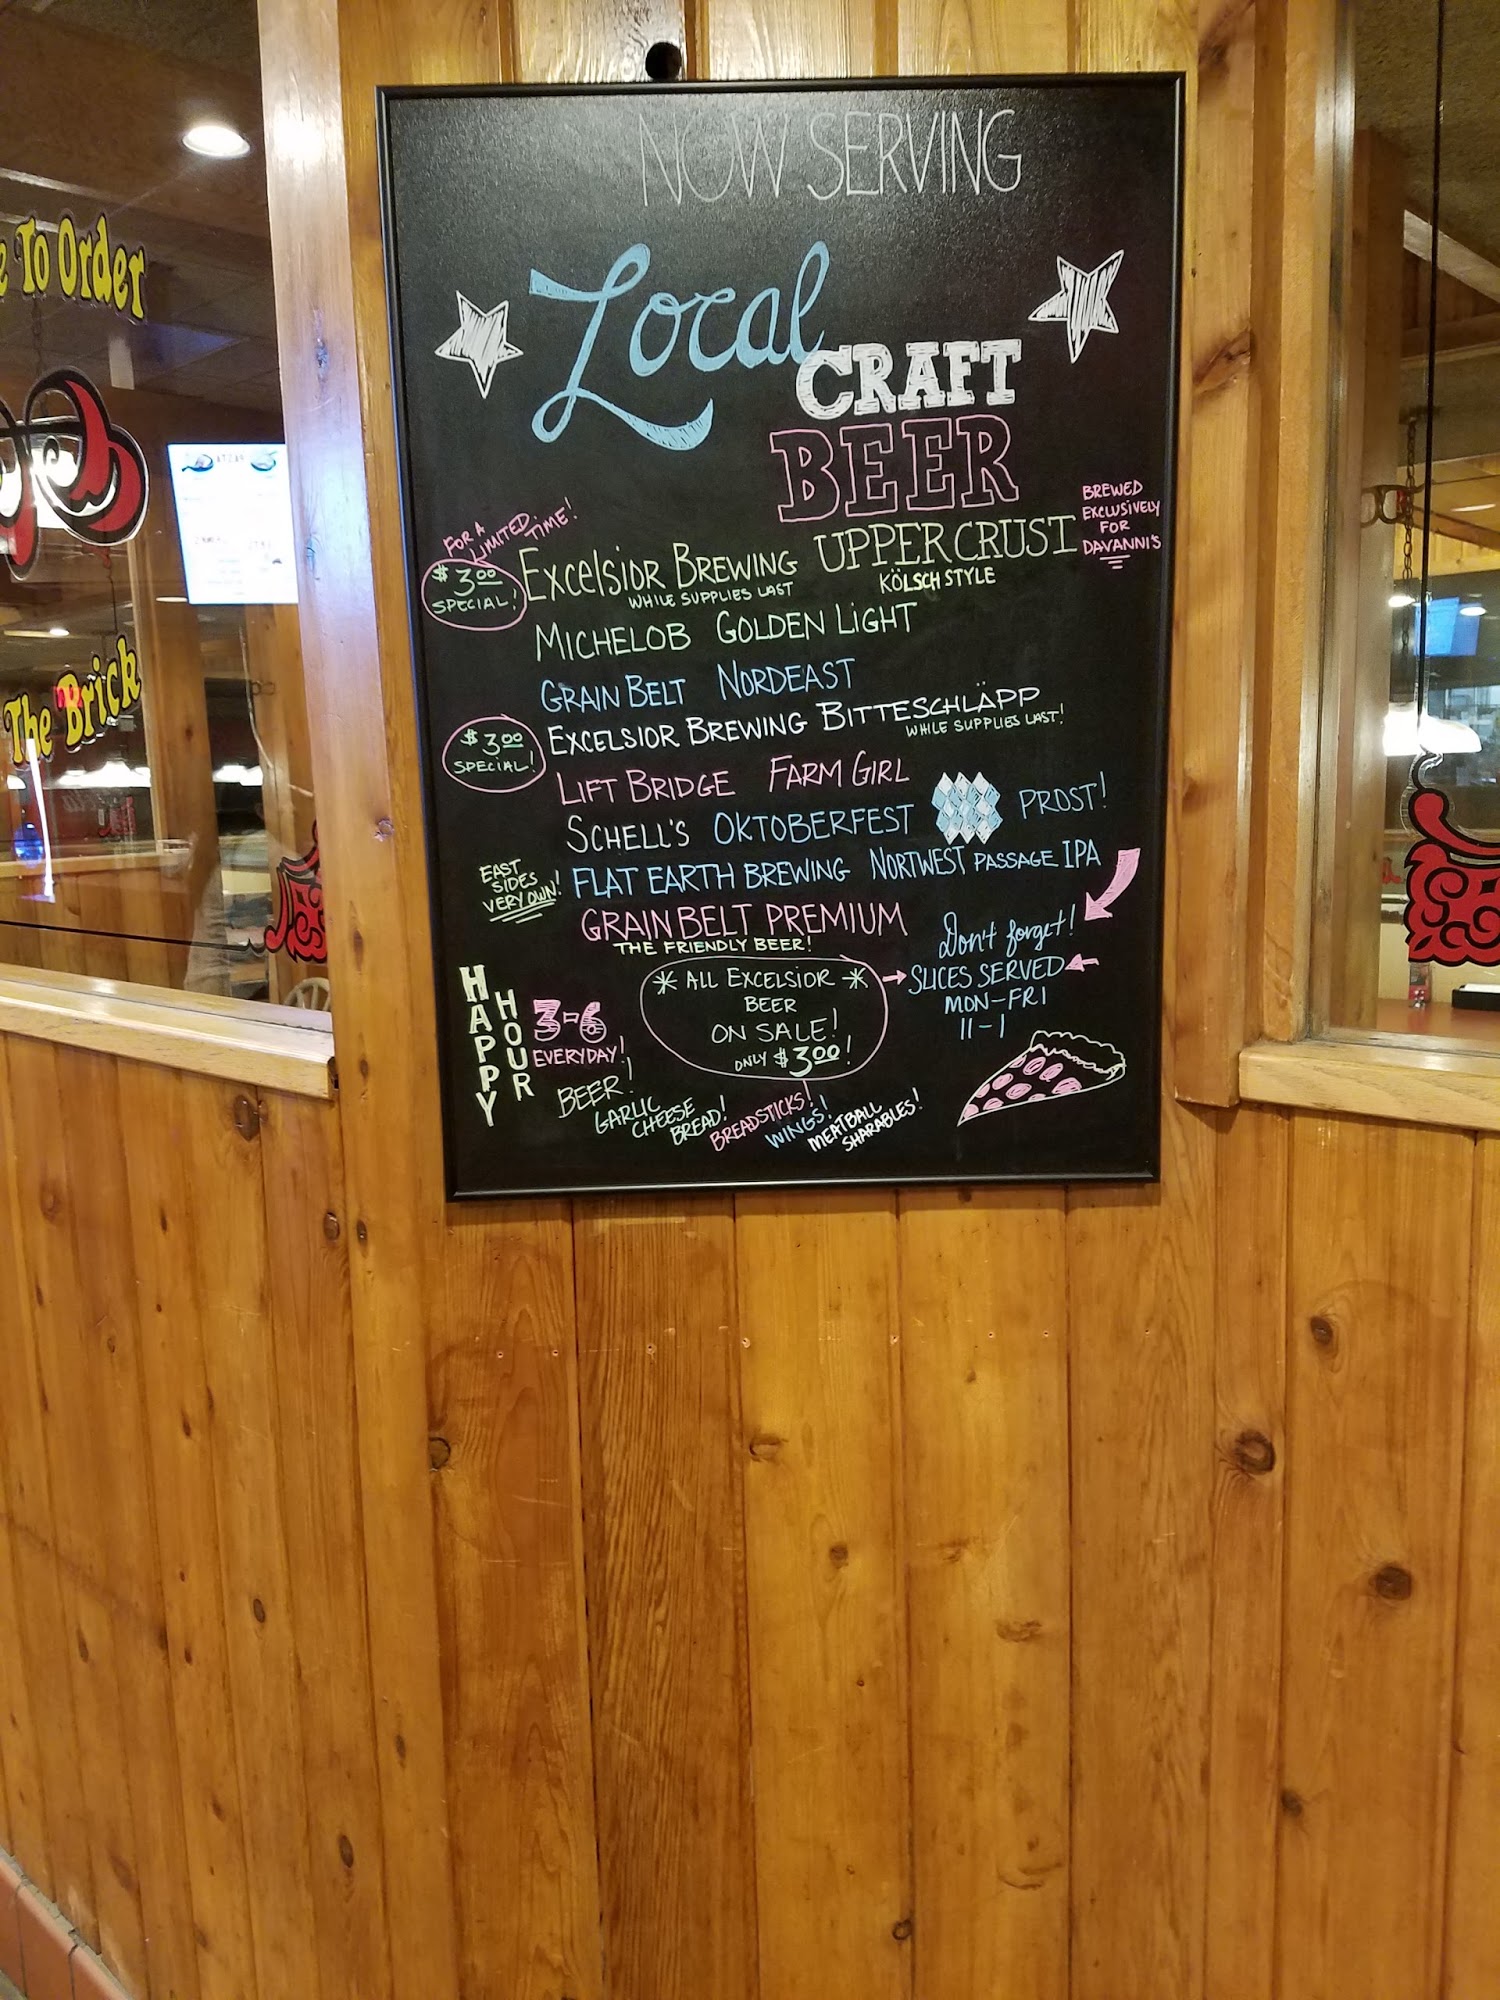 NOW SERVING
Local
CRAFT
BEER
BREWED
EXCLUSIVELY
FOR
DAVANNI'S
FOR A
LIMITED
TIME!
$3.00
SPECIAL!
EXCELSIOR BREWING UPPER CRUST
WHILE SUPPLIES LAST
KÖLSCH STYLE
MICHELOB GOLDEN LIGHT
GRAIN BELT NORDEAST
$3.00
SPECIAL!
EXCELSIOR BREWING BITTESCHLÄPP
WHILE SUPPLIES LAST!
LIFT BRIDGE FARM GIRL
SCHELL'S OKTOBERFEST PROST!
EAST
SIDES
VERY OWN!
FLAT EARTH BREWING NORTWEST PASSAGE IPA
GRAIN BELT PREMIUM
THE FRIENDLY BEER!
Don't forget!
SLICES SERVED
MON-FRI
11-1
* ALL EXCELSIOR *
BEER
ON SALE!
ONLY $3.00!
HAPPY
HOUR
3-6
EVERYDAY!
BEER!
GARLIC
CHEESE
BREAD!
BREADSTICKS!
WINGS!
MEATBALL
SHARABLES!
To Order
The Brick